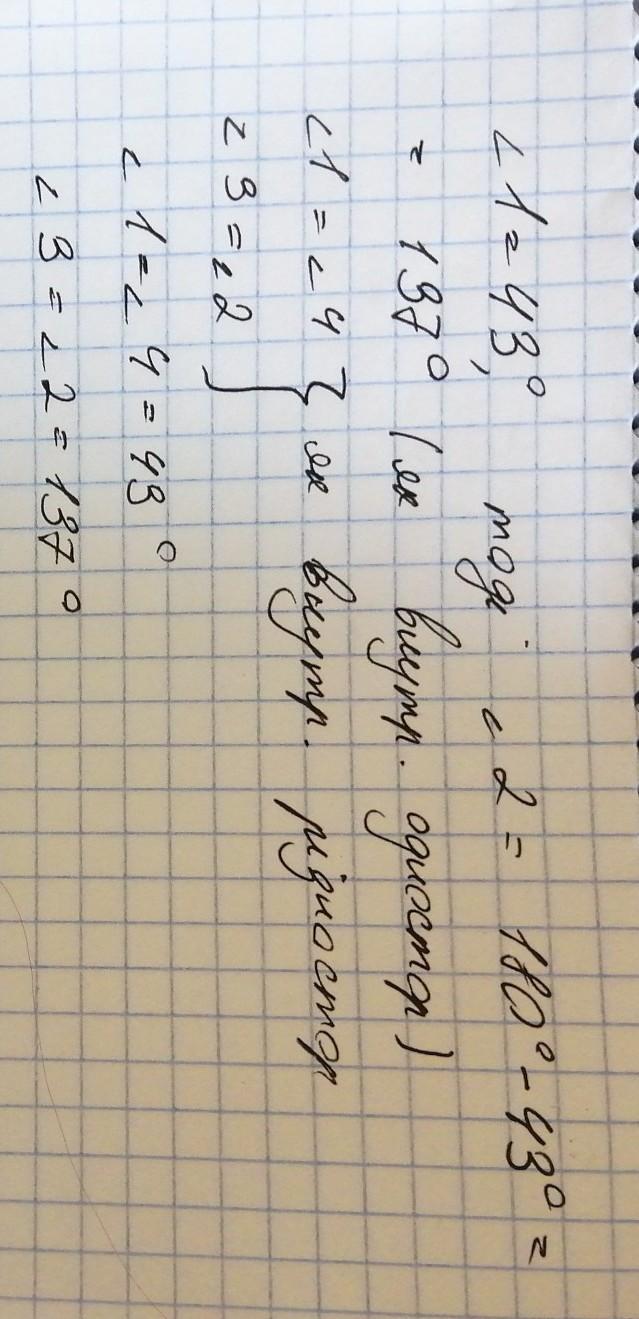 ∠1 = 43°, тоді ∠2 = 180° - 43° =
= 137° (як внутр. одностор)
∠1 = ∠4 } як внутр. різностор
∠3 = ∠2
∠1 = ∠4 = 43°
∠3 = ∠2 = 137°